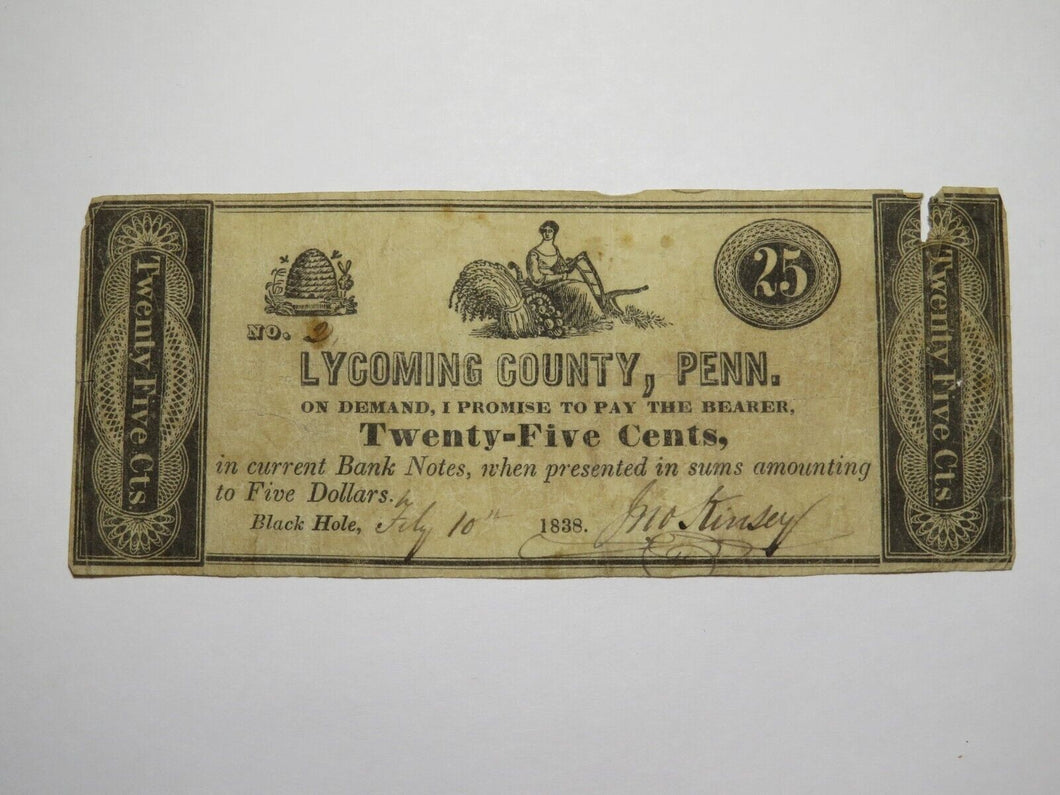 Twenty Five Cts.
No. 2
25
LYCOMING COUNTY, PENN.
ON DEMAND, I PROMISE TO PAY THE BEARER,
Twenty-Five Cents,
in current Bank Notes, when presented in sums amounting
to Five Dollars.
Black Hole, Feby 10th 1838. Jno Kinsey
Twenty Five Cts.